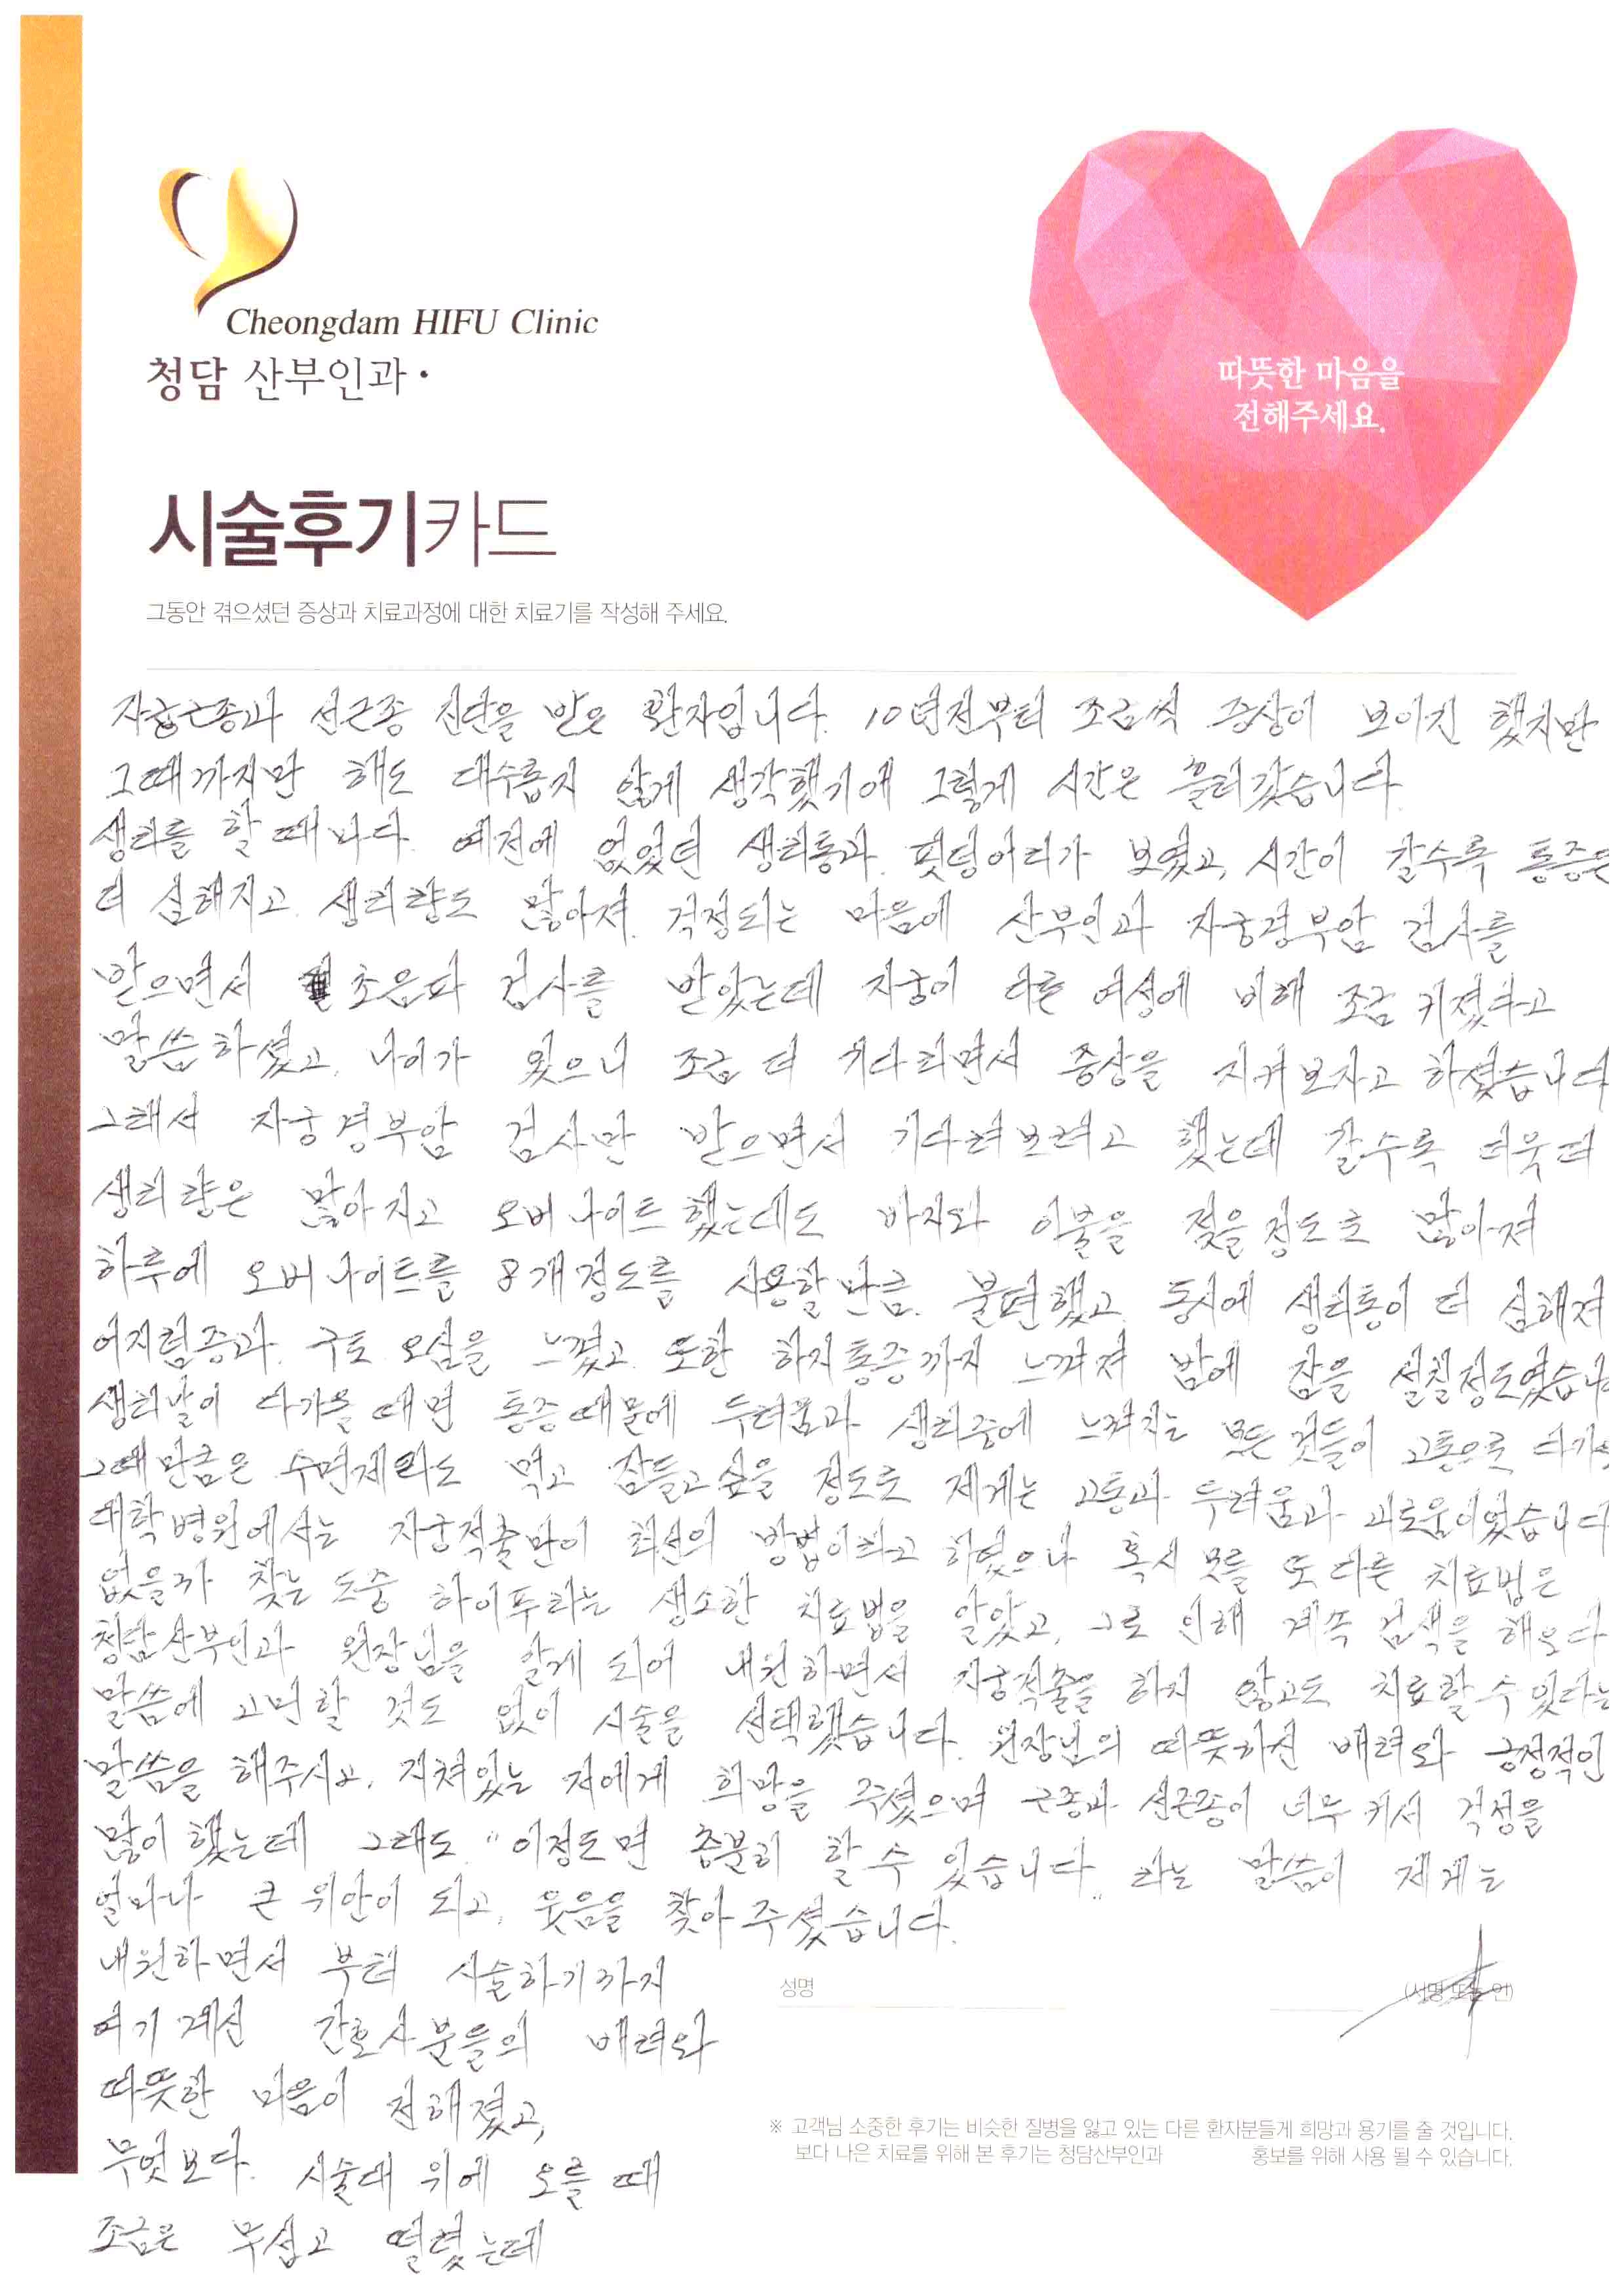 Cheongdam HIFU Clinic
청담 산부인과
따뜻한 마음을
전해주세요.
시술후기카드
그동안 겪으셨던 증상과 치료과정에 대한 치료기를 작성해 주세요.
자궁근종과 선근종 진단을 받은 환자입니다. 10년전부터 조금씩 증상이 보이진 했지만
그때까지만 해도 대수롭지 않게 생각했기에 그렇게 시간은 흘러갔습니다.
생리를 할 때마다 예전에 없었던 생리통과 핏덩어리가 보였고, 시간이 갈수록 통증은
더 심해지고 생리량도 많아져 걱정되는 마음에 산부인과 자궁경부암 검사를
받으면서 초음파 검사를 받았는데 자궁이 다른 여성에 비해 조금 커졌다고
말씀하셨고, 나이가 있으니 조금 더 기다리면서 증상을 지켜보자고 하셨습니다
그래서 자궁경부암 검사만 받으면서 기다려보려고 했는데 갈수록 더욱더
생리량은 많아지고 오버나이트 했는데도 바지와 이불을 젖을정도로 많아져
하루에 오버나이트를 8개정도를 사용할만큼 불편했고 동시에 생리통이 더 심해져
어지럼증과 구토 오심을 느꼈고 또한 하지통증까지 느껴져 밤에 잠을 설칠정도였습니
생리날이 다가올 때면 통증때문에 두려움과 생리중에 느껴지는 모든것들이 고통으로
그때만큼은 수면제라도 먹고 잠들고싶을 정도로 제게는 고통과 두려움과 괴로움이었습니다
대학병원에서는 자궁적출만이 최선의 방법이라고 하였으나 혹시 모를 또 다른 치료법은
없을까 찾는 도중 하이푸라는 생소한 치료법을 알았고, 그로 인해 계속 검색을 해오다
청담산부인과 원장님을 알게 되어 내원하면서 자궁적출을 하지 않고도 치료할 수 있다는
말씀에 고민할 것도 없이 시술을 선택했습니다. 원장님의 따뜻하신 배려와 긍정적인
말씀을 해주시고, 지쳐있는 저에게 희망을 주셨으며 근종과 선근종이 너무 커서 걱정을
많이 했는데 그래도 "이정도면 충분히 할 수 있습니다" 라는 말씀이 제게는
얼마나 큰 위안이 되고, 웃음을 찾아 주셨습니다.
내원하면서 부터 시술하기까지
여기 계신 간호사분들의 배려와
따뜻한 마음이 전해졌고,
무엇보다 시술대 위에 오를 때
조금은 무섭고 떨렸는데
성명
(서명 또는 인)
※ 고객님 소중한 후기는 비슷한 질병을 앓고 있는 다른 환자분들께 희망과 용기를 줄 것입니다.
보다 나은 치료를 위해 본 후기는 청담산부인과 홍보를 위해 사용 될 수 있습니다.